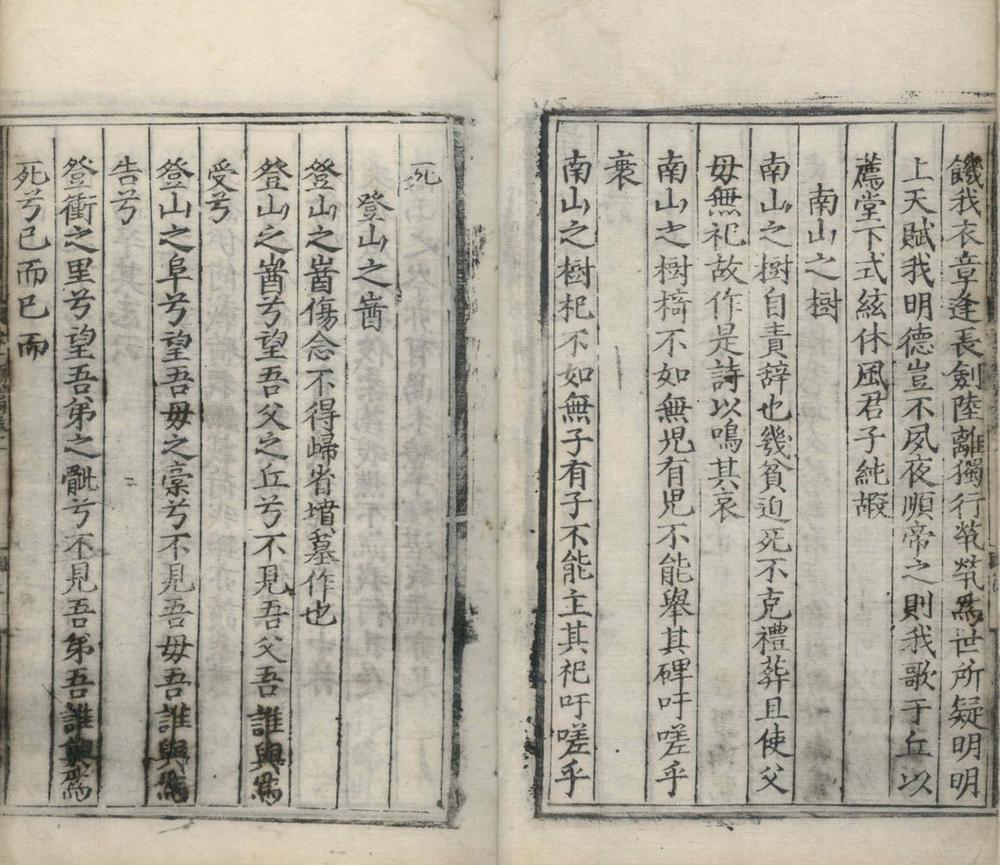 饑我衣章逢長劍陸離獨行煢煢爲世所疑明明
上天賦我明德豈不夙夜順帝之則我歌于丘以
薦堂下式絃休風君子純嘏
南山之樹
南山之樹自責辞也幾貧迫死不克禮葬且使父
母無祀故作是詩以鳴其哀
南山之樹檹不如無児有児不能舉其碑吁嗟乎
衰
南山之樹杞不如無子有子不能主其祀吁嗟乎
死
登山之崮
登山之崮傷念不得歸省墳墓作也
登山之崮兮望吾父之丘兮不見吾父吾誰與爲
受兮
登山之阜兮望吾母之槀兮不見吾毋吾誰與爲
告兮
登衝之里兮望吾弟之骴兮不見吾弟吾誰與爲
死兮已而已而